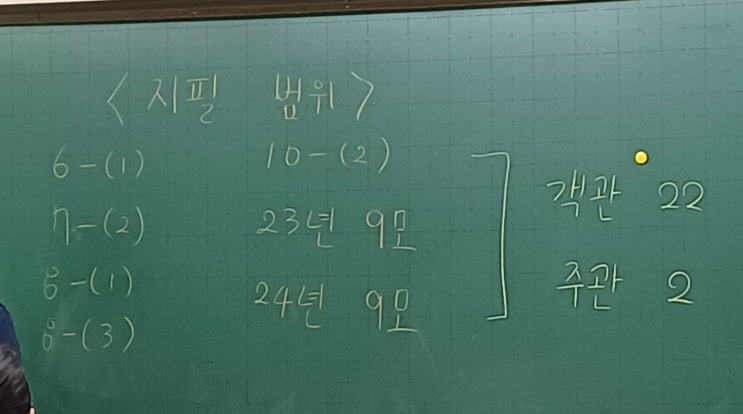 <지필 범위>
6-(1)
7-(2)
8-(1)
8-(3)
10-(2)
23년 9모
24년 9모
객관 22
주관 2